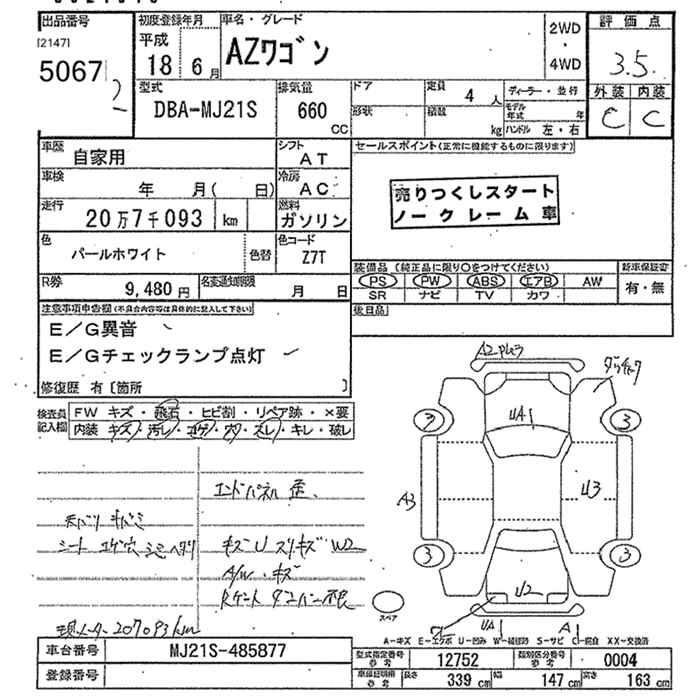 出品番号
[2147]
5067
2
初度登録年月
平成
18 6月
車名・グレード
AZワゴン
2WD
・
4WD
評価点
3.5
外装 内装
C C
型式
DBA-MJ21S
排気量
660
CC
ドア
形状
定員 4 人
積数
kg
ディーラー・並行
モデル年式 年
ハンドル 左・右
車歴
自家用
シフト
AT
車検
年 月( 日)
冷房
AC
走行
20万7千093 km
燃料
ガソリン
色
パールホワイト
色替
色コード
Z7T
R券
9,480円
名変通知期限
月 日
セールスポイント(正常に機能するものに限ります)
売りつくしスタート
ノークレーム車
装備品(純正品に限り○をつけてください)
PS PW ABS エアB AW
SR ナビ TV カワ
新車保証書
有・無
後日品
注意事項申告欄(不具合内容等は具体的に記入して下さい)
E/G異音
E/Gチェックランプ点灯
修復歴 有〔箇所 〕
検査員
記入欄
FW キズ・飛石・ヒビ割・リペア跡・×要
内装 キズ・汚レ・コゲ・穴・スレ・キレ・破レ
エンドパネル 歪
シート コゲ穴
キズ U スリキズ W2
A/W キズ
Rゲート ダンパー不良
現メーター207093km
3
3
3
3
UA1
A3
U3
U2
UA1
A1
スペア
A-キズ E-エクボ U-凹み W-補修跡 S-サビ C-腐食 XX-交換済
車台番号
MJ21S-485877
登録番号
型式指定番号
参考
12752
類別区分番号
参考
0004
車検証明用
参考
長さ 339cm 幅 147cm 高さ 163cm